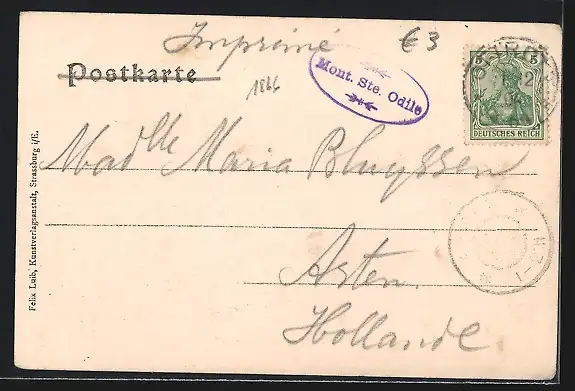 Imprimé
€3
Postkarte
1866
Mont. Ste. Odile
5 5
DEUTSCHES REICH
Madlle Maria Bluyssen
Asten.
Hollande.
Felix Luib, Kunstverlagsanstalt, Strassburg i/E.